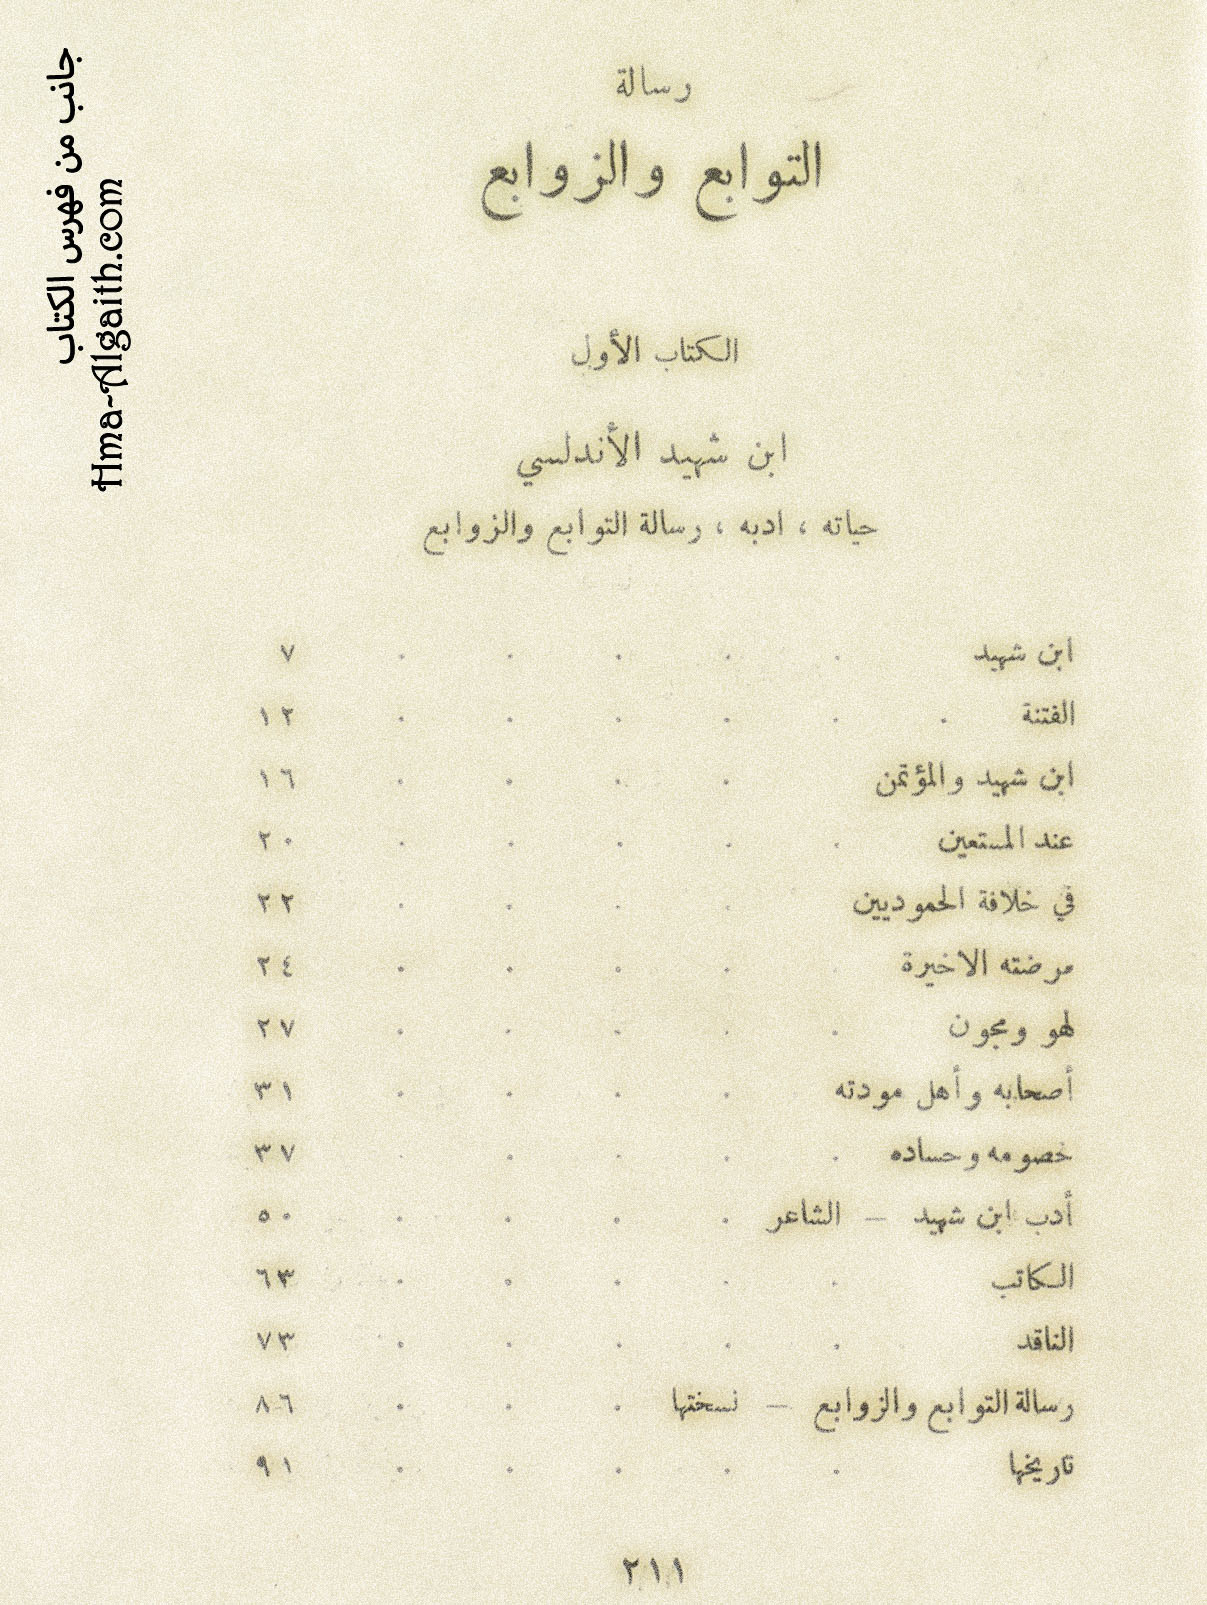 رسالة
التوابع والزوابع
الكتاب الأول
ابن شهيد الأندلسي
حياته ، ادبه ، رسالة التوابع والزوابع
ابن شهيد . . . . . ٧
الفتنة . . . . . . ١٢
ابن شهيد والمؤتمن . . . . ١٦
عند المستعين . . . . . ٢٠
في خلافة الحموديين . . . . ٢٢
مرضته الاخيرة . . . . . ٢٤
لهو ومجون . . . . . ٢٧
أصحابه وأهل مودته . . . . ٣١
خصومه وحساده . . . . . ٣٧
أدب ابن شهيد – الشاعر . . . . ٥٠
الكاتب . . . . . ٦٣
الناقد . . . . . ٧٣
رسالة التوابع والزوابع – نسختها . . . ٨٦
تاريخها . . . . . ٩١
٢١١
جانب من فهرس الكتاب
Hma-Algaith.com